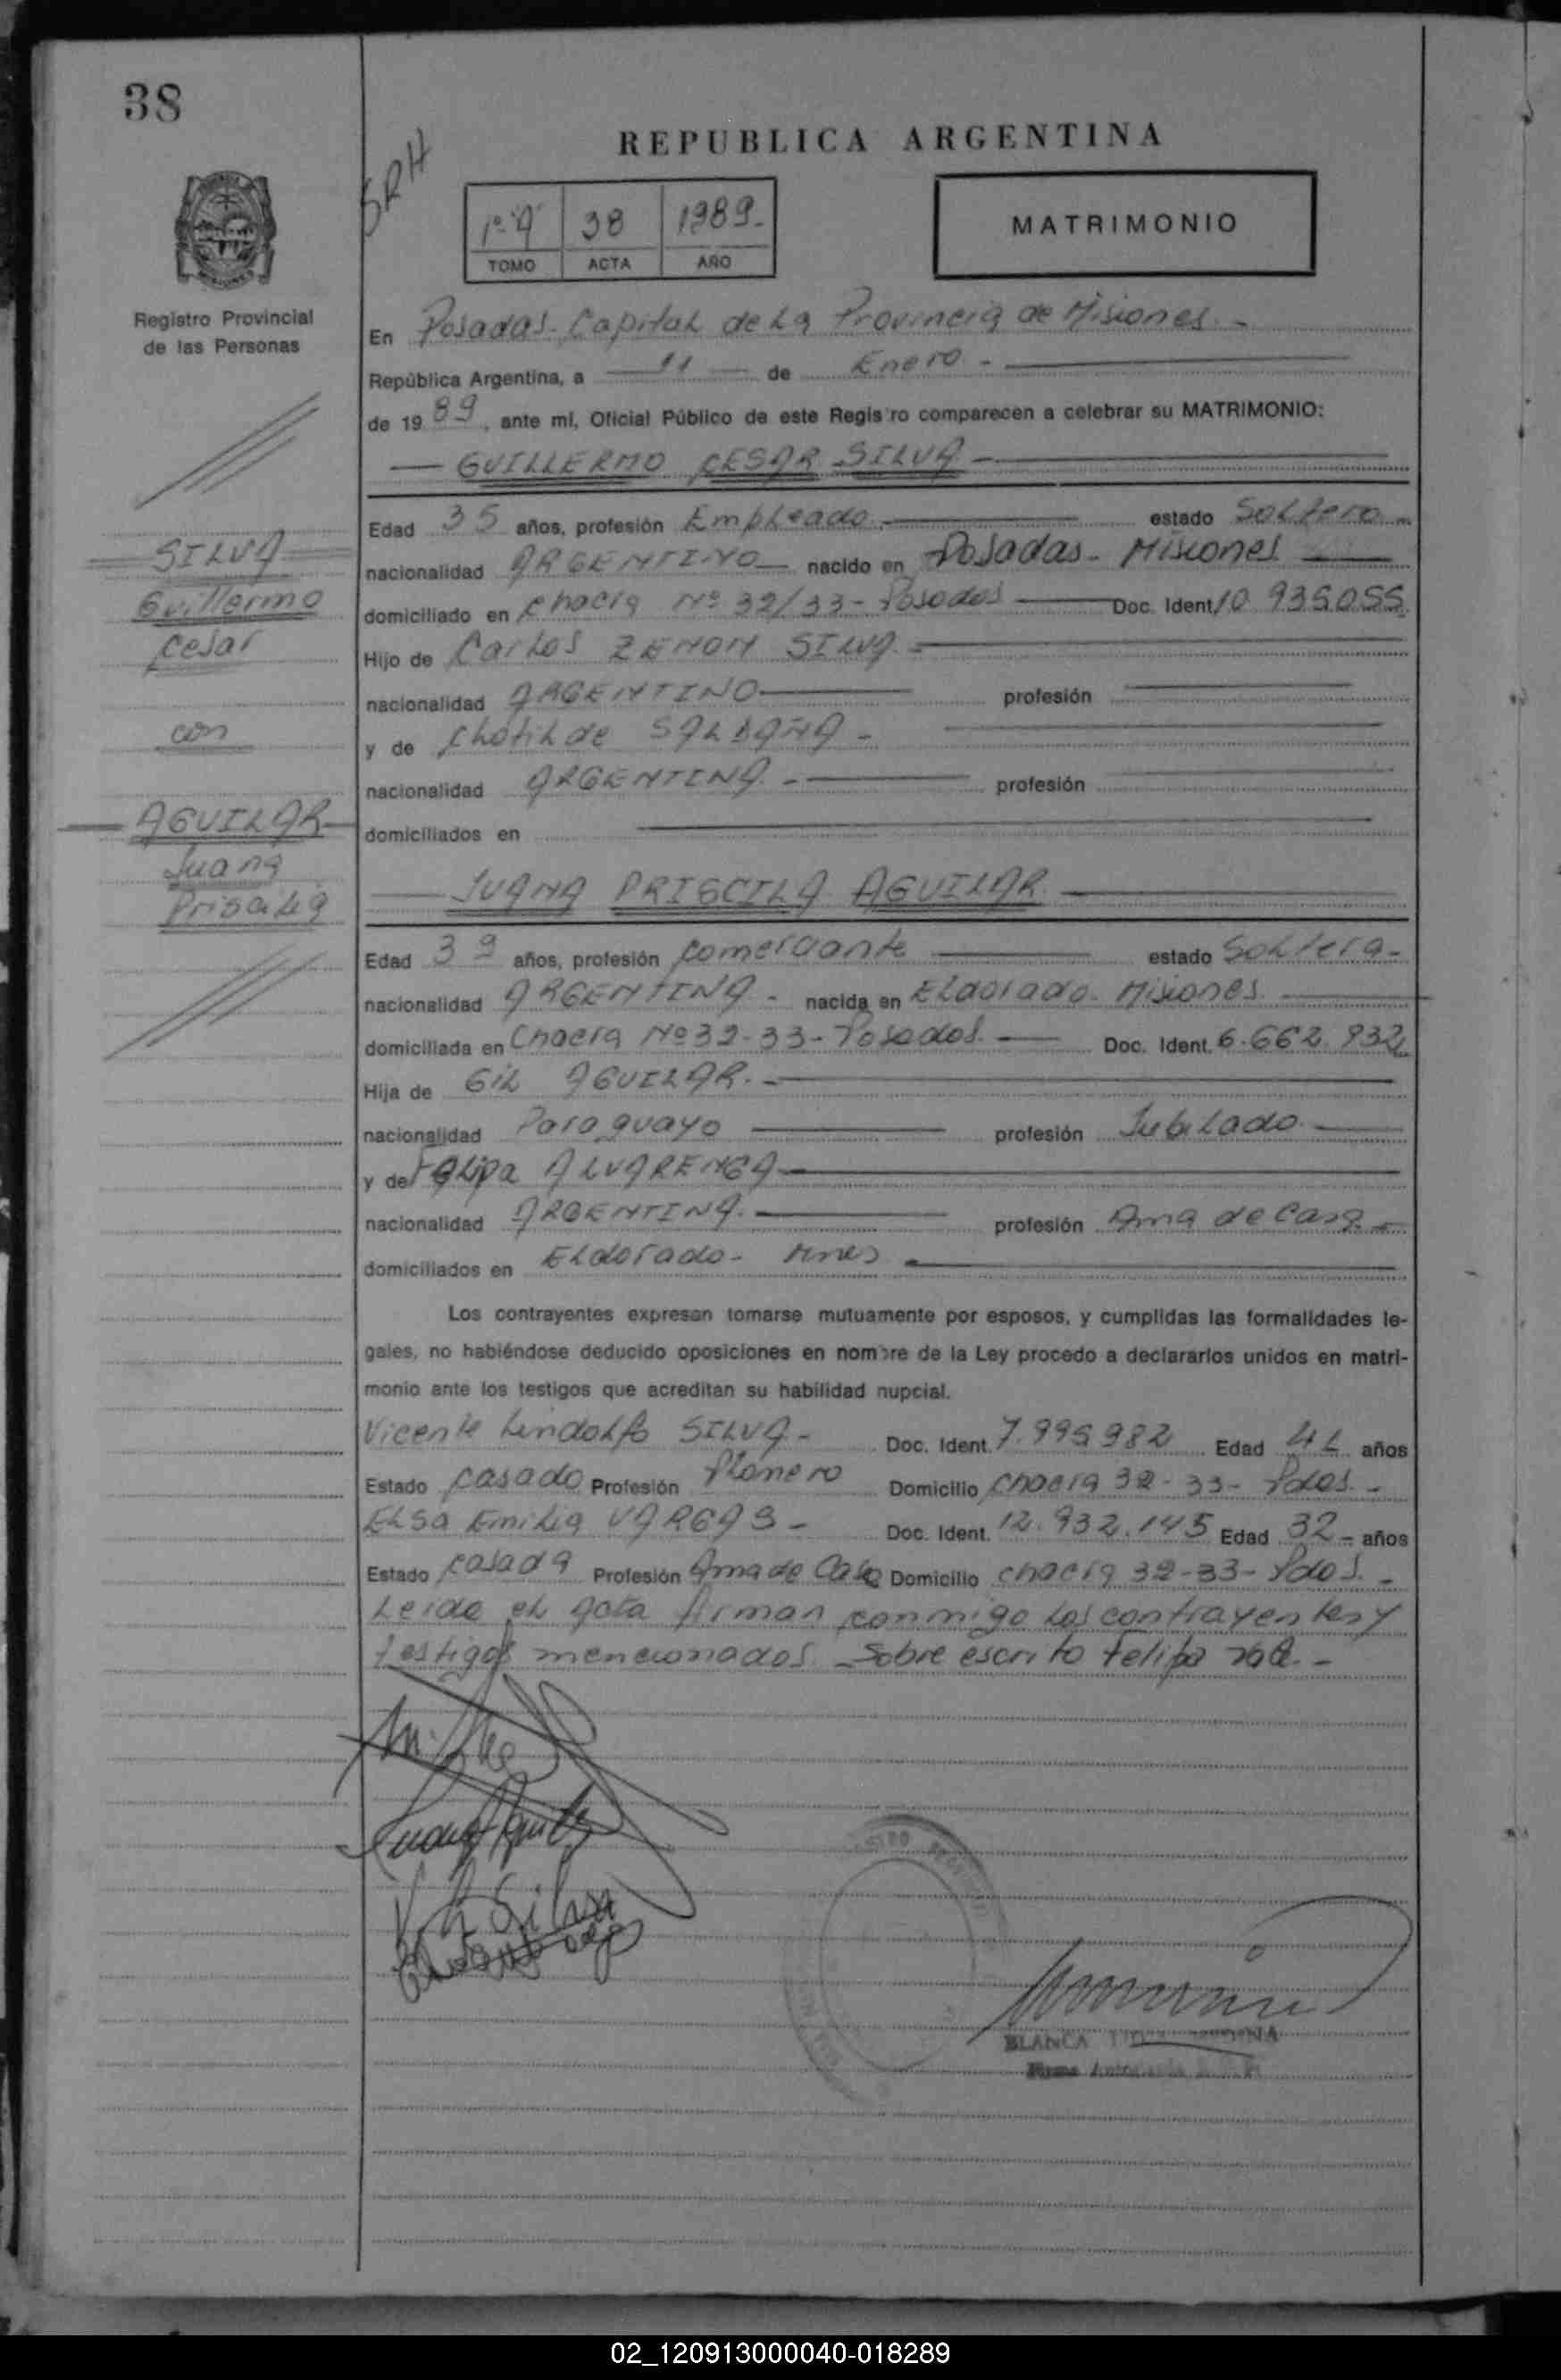 38
REPUBLICA ARGENTINA
SRH
1º "A" 38 1989.-
TOMO ACTA AÑO
MATRIMONIO
Registro Provincial
de las Personas
En Posadas. Capital de La Provincia de Misiones.-
República Argentina, a 11 de Enero.-
de 1989, ante mí, Oficial Público de este Registro comparecen a celebrar su MATRIMONIO:
GUILLERMO CESAR SILVA.-
Edad 35 años, profesión Empleado estado Soltero.-
nacionalidad ARGENTINO nacido en Posadas- Misiones
domiciliado en Chacra Nº 32/33- Posadas Doc. Ident. 10.935.055
Hijo de Carlos ZENON SILVA.-
nacionalidad ARGENTINO profesión
y de Clotilde SALDAÑA-
nacionalidad ARGENTINA.- profesión
domiciliados en
JUANA PRISCILA AGUILAR.
Edad 39 años, profesión comerciante estado Soltera-
nacionalidad ARGENTINA- nacida en Eldorado- Misiones
domiciliada en Chacra Nº 32-33- Posadas.- Doc. Ident. 6.662.932
Hija de Gil AGUILAR.-
nacionalidad Paraguayo profesión Jubilado
y de Felipa ALVARENGA
nacionalidad ARGENTINA.- profesión Ama de Casa.-
domiciliados en Eldorado- Mnes
Los contrayentes expresan tomarse mutuamente por esposos, y cumplidas las formalidades le-
gales, no habiéndose deducido oposiciones en nombre de la Ley procedo a declararlos unidos en matri-
monio ante los testigos que acreditan su habilidad nupcial.
Vicente Lindolfo SILVA- Doc. Ident. 7.995.982 Edad años
Estado casado Profesión Domicilio Chacra 32-33- Pdas.-
Elsa Emilia VARGAS- Doc. Ident. 12.932.145 Edad 32- años
Estado casada Profesión Ama de Casa Domicilio chacra 32-33- Pdas.-
Leida el acta firman conmigo los contrayentes y
testigos mencionados. Sobre escrito Felipa vale.-
SILVA
Guillermo
Cesar
con
AGUILAR
Juana
Priscila
Silva
BLANCA
02_120913000040-018289